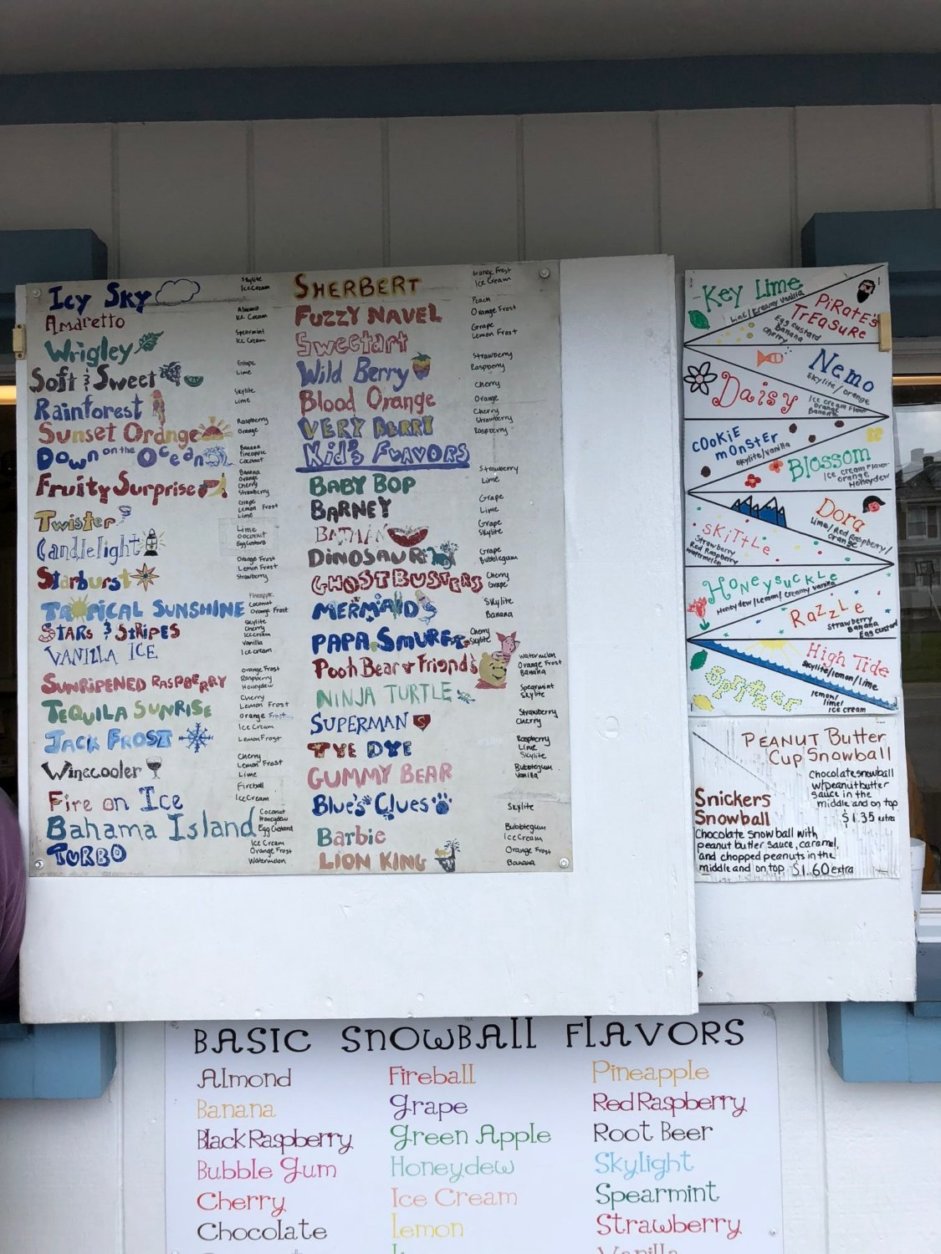 Icy Sky
Skylite
Ice Cream
Amaretto
Almond
Ice Cream
Wrigley
Spearmint
Ice Cream
Soft & Sweet
Grape
Lime
Rainforest
Skylite
Lime
Sunset Orange
Raspberry
Orange
Down on the Ocean
Banana
Pineapple
Coconut
Fruity Surprise
Banana
Orange
Cherry
Strawberry
Twister
Grape
Lemon Frost
Lime
Candlelight
Lime
Coconut
Egg Custard
Starburst
Orange Frost
Lemon Frost
Strawberry
Tropical Sunshine
Pineapple
Coconut
Orange Frost
Stars & Stripes
Skylite
Cherry
Ice cream
Vanilla Ice
Vanilla
Ice cream
Sunripened Raspberry
Orange Frost
Raspberry
Honeydew
Tequila Sunrise
Cherry
Lemon Frost
Orange Frost
Jack Frost
Ice Cream
Lemon Frost
Winecooler
Cherry
Lemon Frost
Lime
Fire on Ice
Fireball
Ice Cream
Bahama Island
Coconut
Honeydew
Egg Custard
Turbo
Ice Cream
Orange Frost
Watermelon
Sherbert
Frost
Ice Cream
Fuzzy Navel
Peach
Orange Frost
Sweetart
Grape
Lemon Frost
Wild Berry
Strawberry
Raspberry
Blood Orange
Cherry
Orange
Very Berry
Cherry
Strawberry
Raspberry
Kid's Flavors
Baby Bop
Strawberry
Lime
Barney
Grape
Lime
Batman
Grape
Skylite
Dinosaur
Grape
Bubblegum
Ghostbusters
Cherry
Grape
Mermaid
Skylite
Banana
Papa Smurf
Cherry
Skylite
Pooh Bear & Friends
Watermelon
Orange Frost
Banana
Ninja Turtle
Spearmint
Skylite
Superman
Strawberry
Cherry
Tye Dye
Raspberry
Lime
Skylite
Gummy Bear
Bubblegum
Vanilla
Blue's Clues
Skylite
Barbie
Bubblegum
Ice Cream
Lion King
Orange Frost
Banana
Key Lime
Lime/Creamy Vanilla
Pirate's
Treasure
Egg custard
Banana
Cherry
Nemo
Skylite/orange
Daisy
Ice Cream Flavor
Orange
Banana
Cookie
Monster
Skylite/vanilla
Blossom
Ice cream flavor
Orange
Honeydew
Dora
Lime/Red Raspberry/
Orange
Skittle
Strawberry
Red Raspberry
Watermelon
Honeysuckle
Honeydew/Lemon/Creamy Vanilla
Razzle
Strawberry
Banana
Egg Custard
High Tide
Skylite/lemon/lime
Spritzer
lemon/
lime/
ice cream
Peanut Butter
Cup Snowball
Chocolate snowball
w/peanut butter
sauce in the
middle and on top
$1.35 extra
Snickers
Snowball
Chocolate snowball with
peanut butter sauce, caramel,
and chopped peanuts in the
middle and on top $1.60 extra
Basic Snowball Flavors
Almond
Banana
Black Raspberry
Bubble Gum
Cherry
Chocolate
Fireball
Grape
Green Apple
Honeydew
Ice Cream
Lemon
Pineapple
Red Raspberry
Root Beer
Skylight
Spearmint
Strawberry
Vanilla